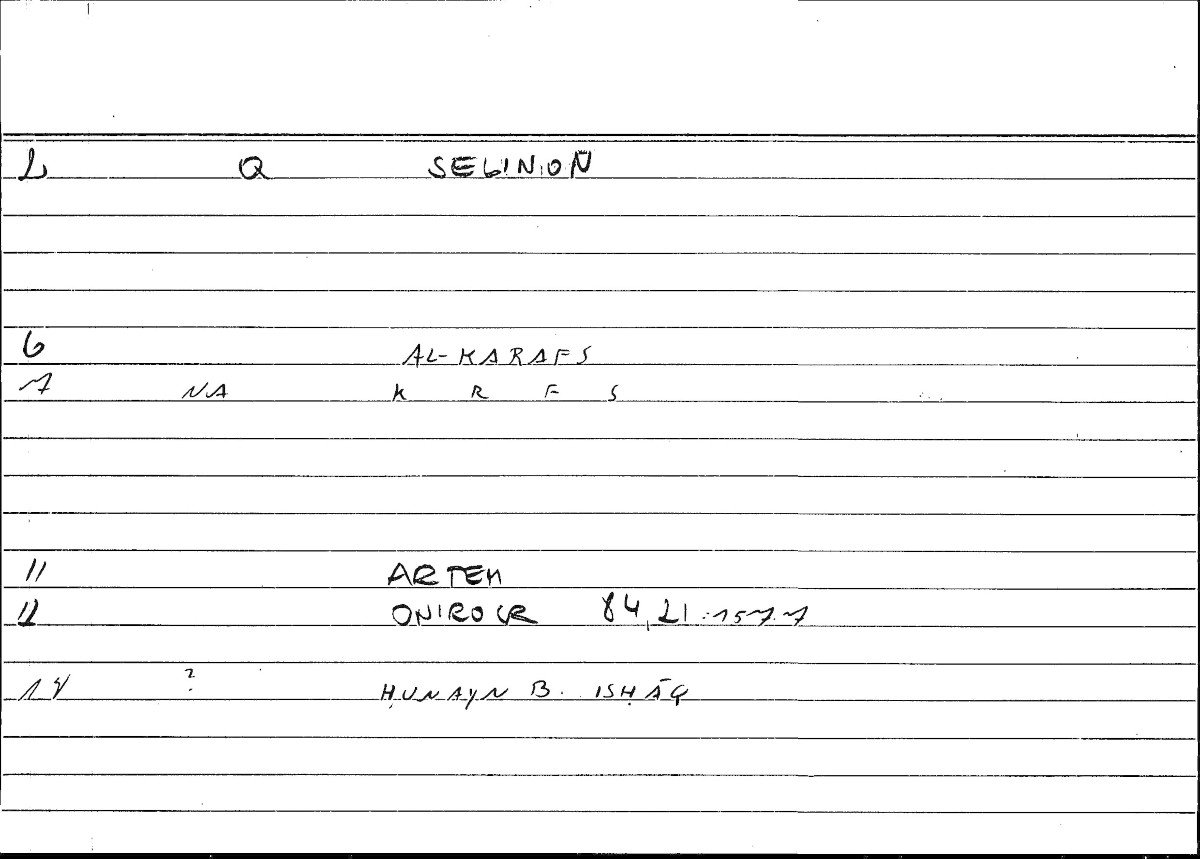 2 Q SELINON
6 AL-KARAFS
7 NA K R F S
11 ARTEM
12 ONIROCR 84,21:157.7
14 ? ḤUNAYN B. ISḤĀQ